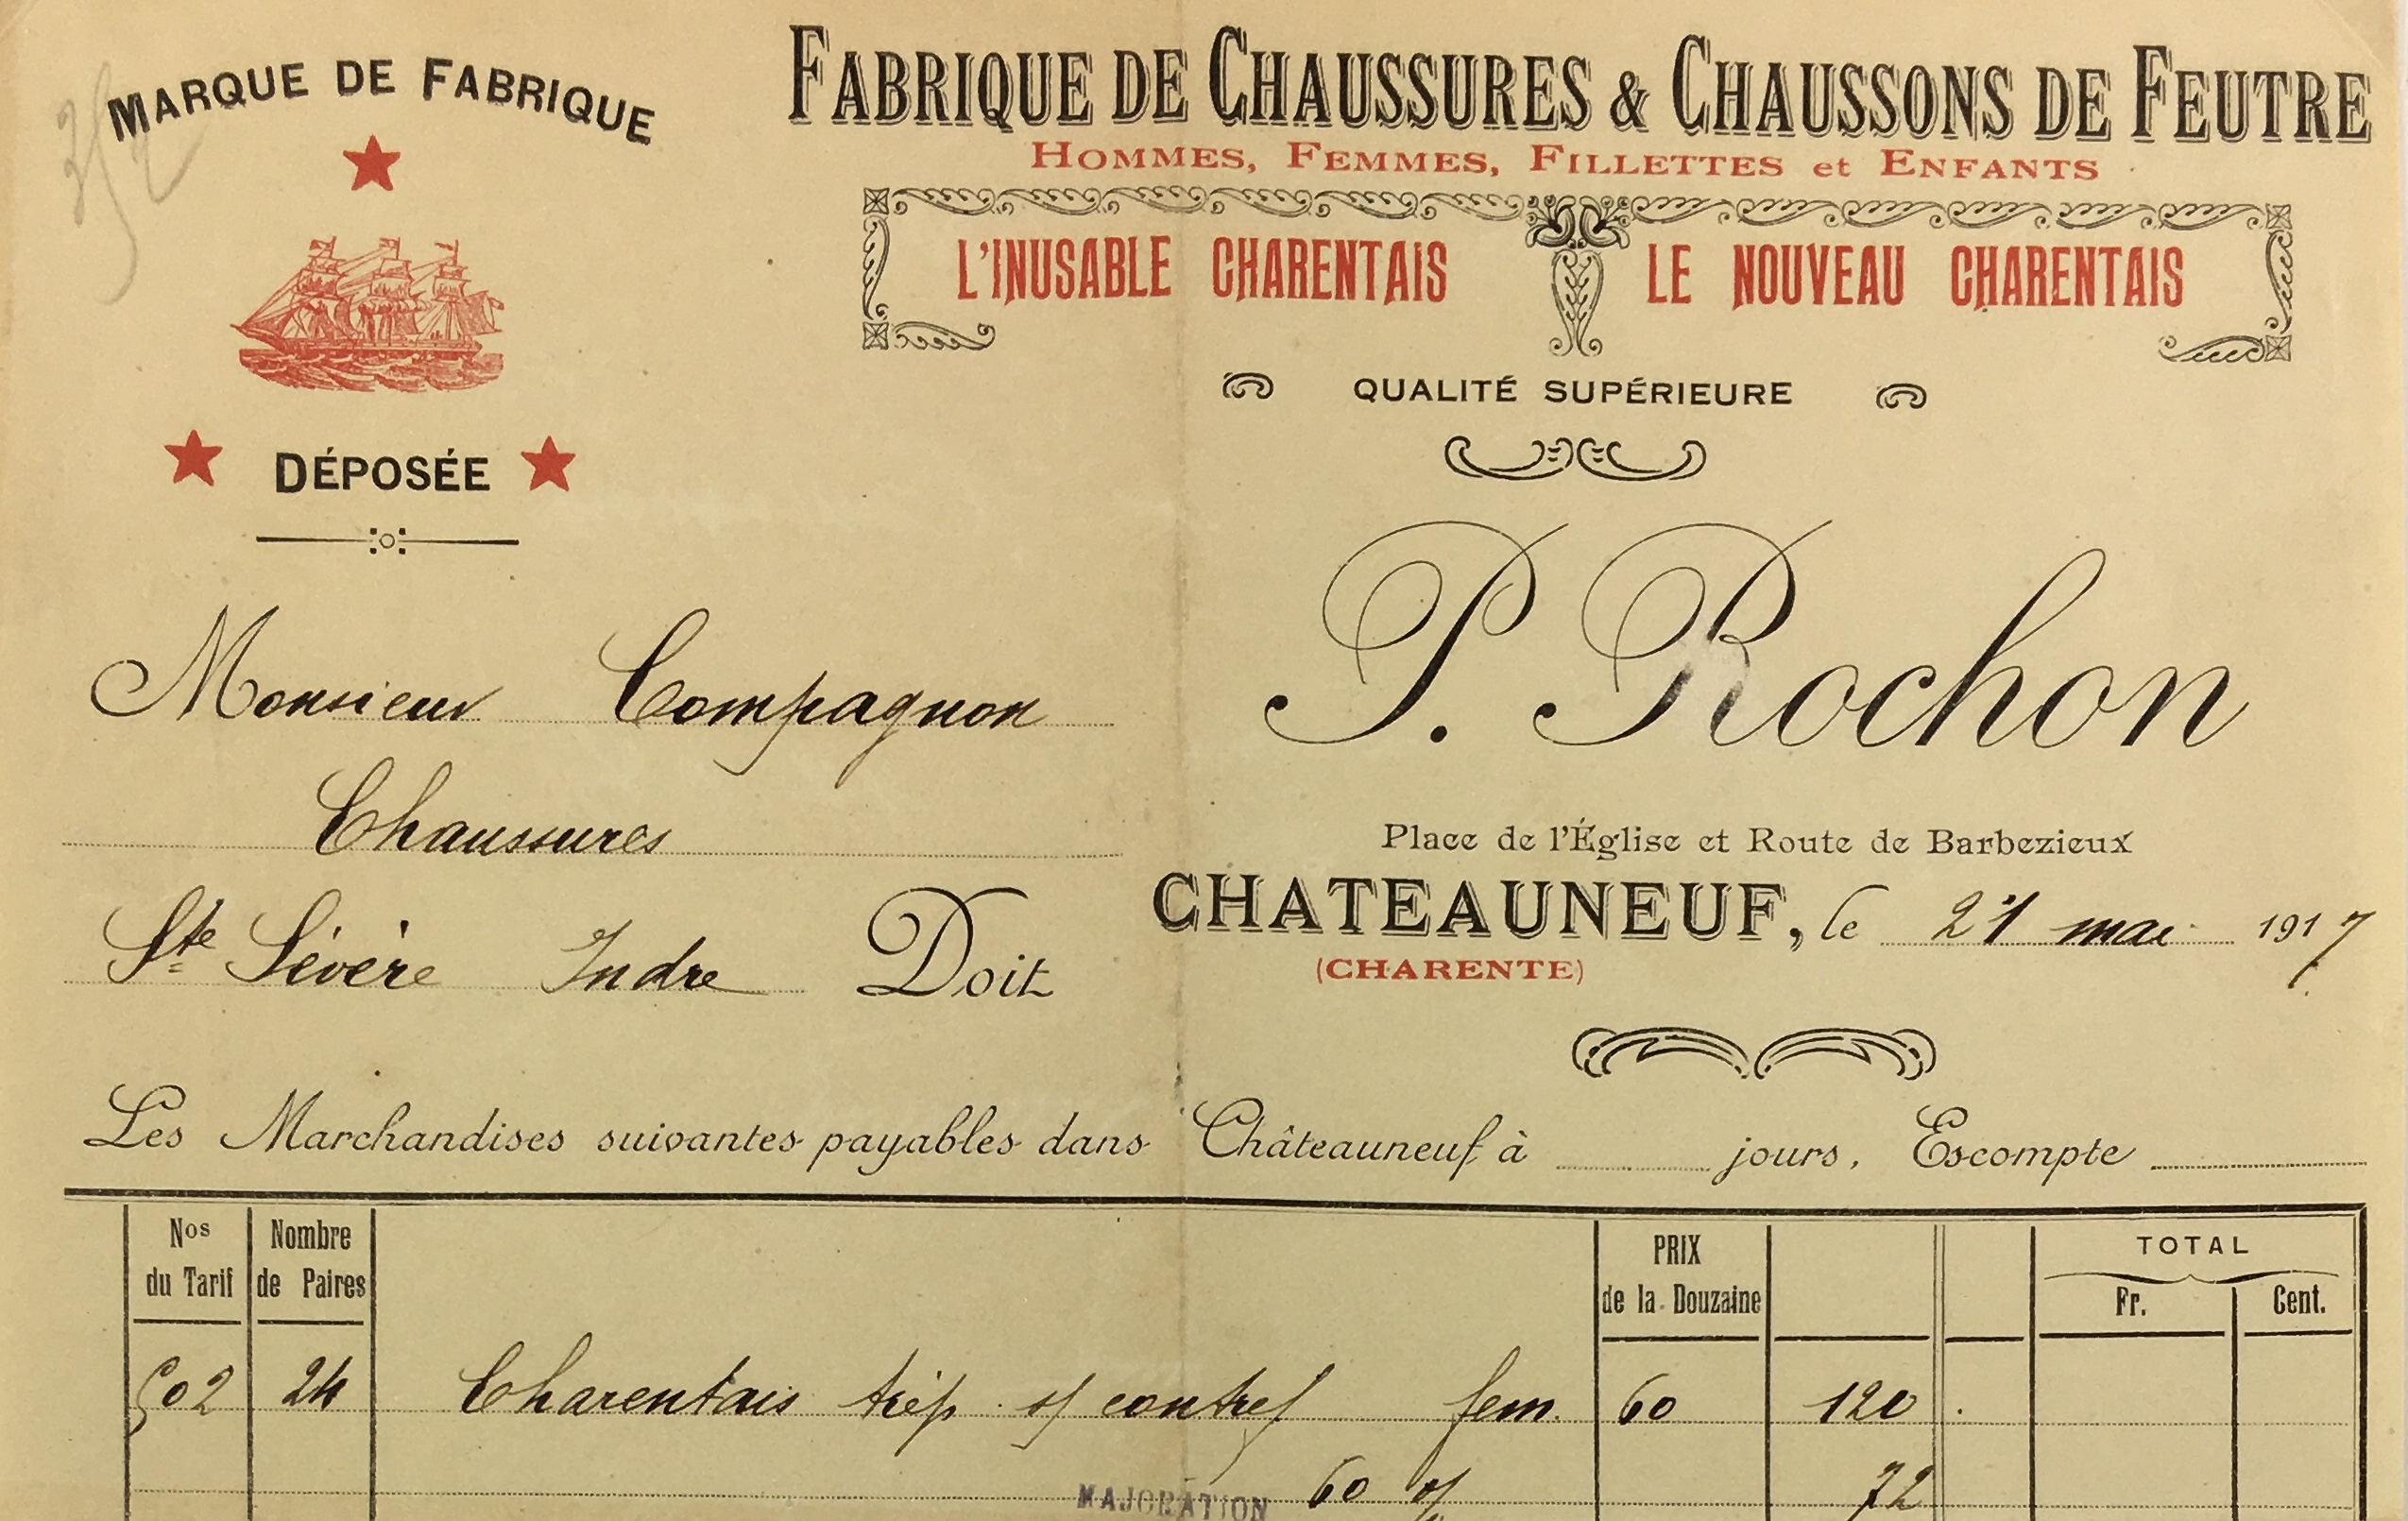 MARQUE DE FABRIQUE
DÉPOSÉE
FABRIQUE DE CHAUSSURES & CHAUSSONS DE FEUTRE
HOMMES, FEMMES, FILLETTES et ENFANTS
L'INUSABLE CHARENTAIS LE NOUVEAU CHARENTAIS
QUALITÉ SUPÉRIEURE
P. Rochon
Place de l'Église et Route de Barbezieux
CHATEAUNEUF, le 21 mai 1917
(CHARENTE)
Monsieur Compagnon
Chaussures
Ste Sévère Indre Doit
Les Marchandises suivantes payables dans Châteauneuf à jours, Escompte
Nos du Tarif Nombre de Paires PRIX de la Douzaine TOTAL Fr. Cent.
502 24 Charentais trép. s/ contref fem. 60 120
MAJORATION 60 % 72